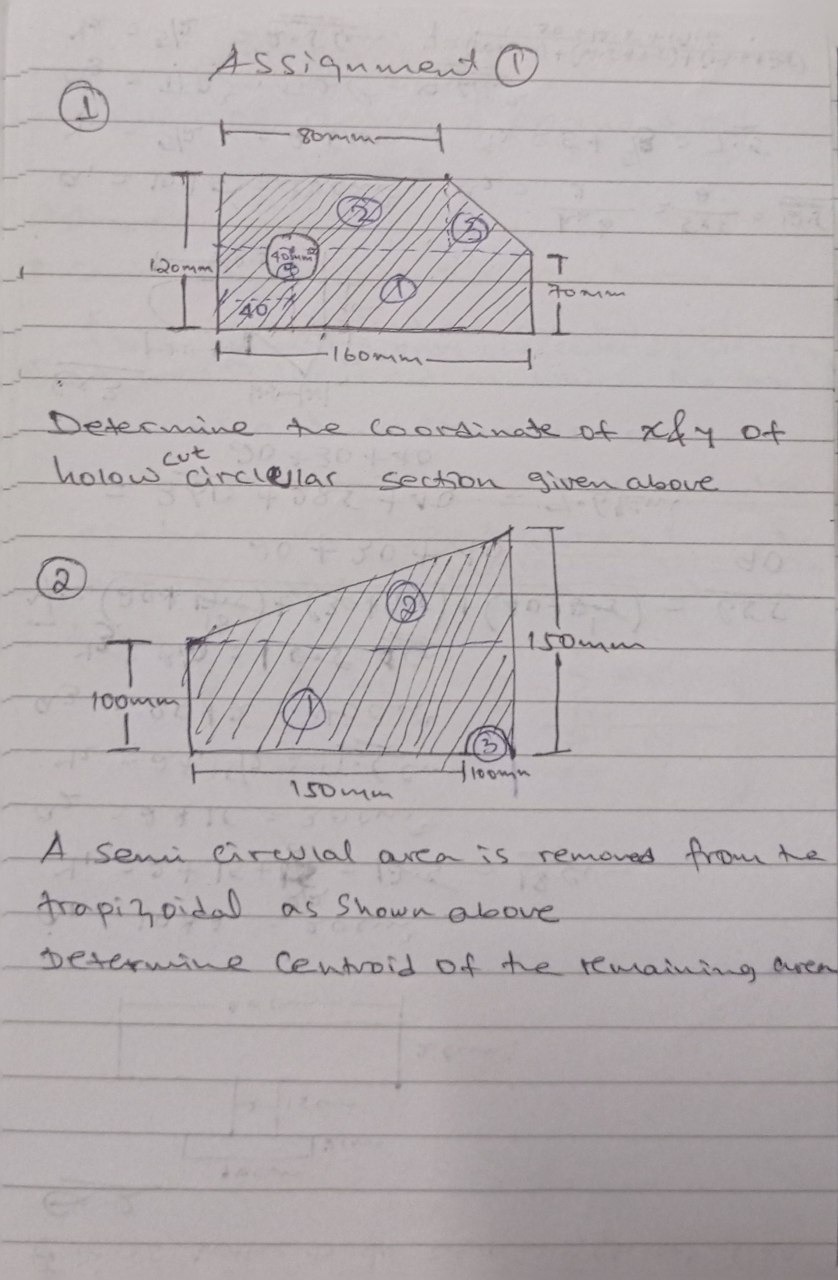 Assignment ①
①
80mm
②
③
120mm
40
①
70mm
40
160mm
Determine the coordinate of x & y of
holow cut circlellar section given above
②
②
150mm
100mm
①
③
150mm
100mm
A semi circulal area is removed from the
trapizoidal as shown above
Determine Centroid of the remaining area